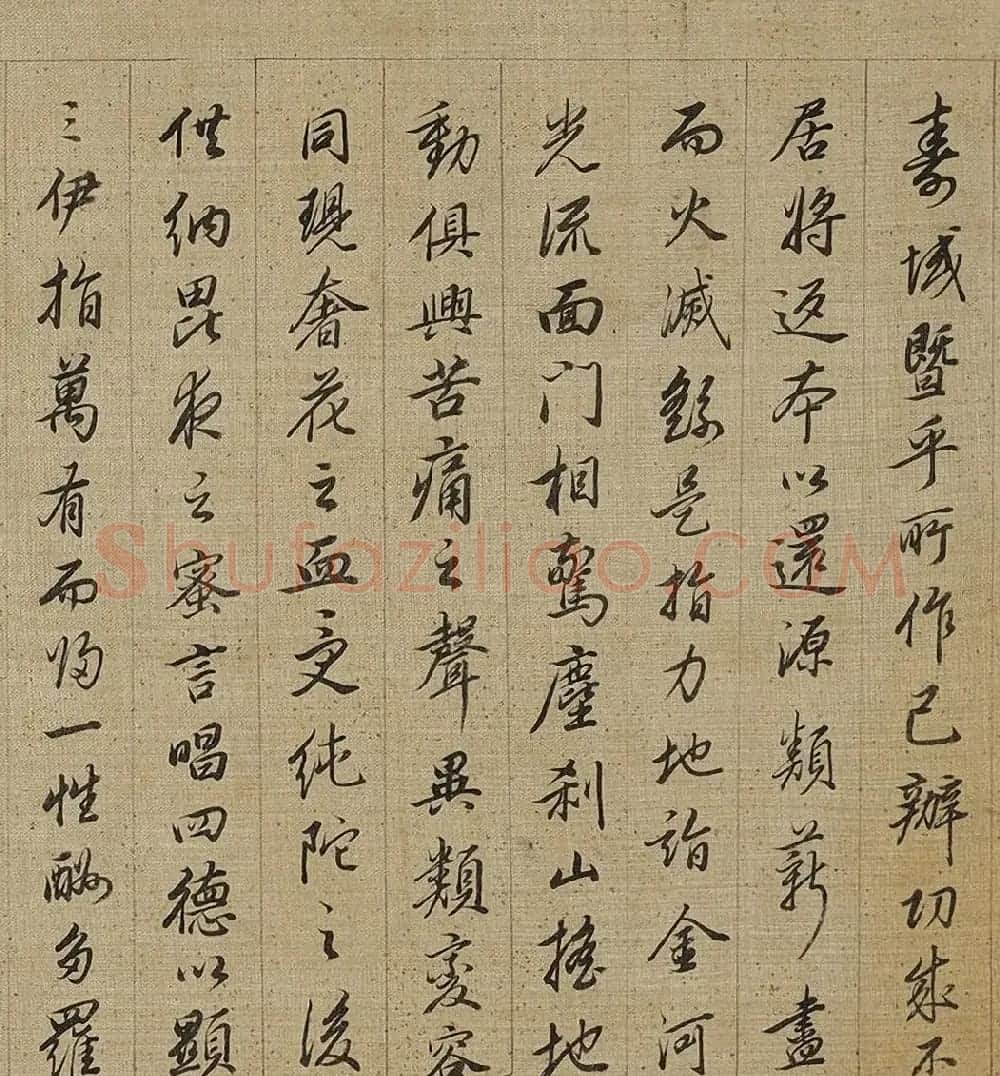 壽域暨乎所作已辦功成不
居將返本以還源類薪盡
而火滅繇是指力地詣金河
光流面門相驚塵剎山搖地
動俱興苦痛之聲異類變容
同現奢花之血受純陀之後
供納毘夜之蜜言唱四德以顯
三伊指萬有而歸一性酬多羅
Shufaziliao.COM